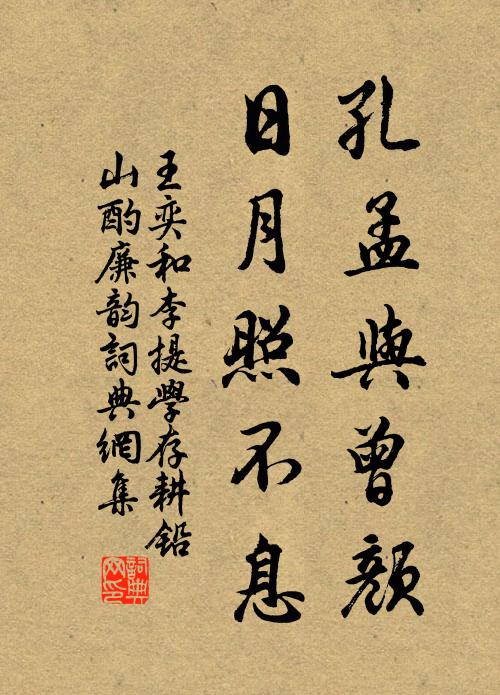 孔孟與曾顏
日月照不息
王奕和李提學存耕鉛
山酌廉韵詞典網集
詞典
网印